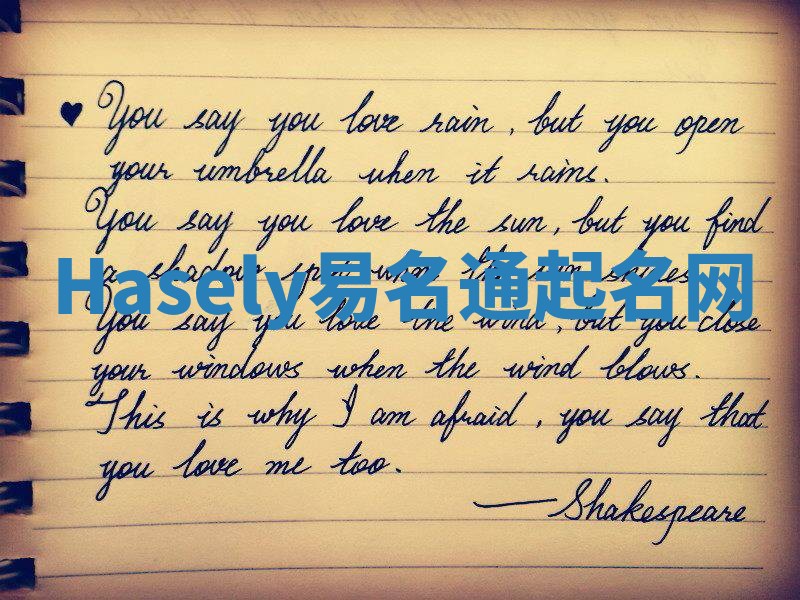 ♥ You say you love rain, but you open
your umbrella when it rains.
You say you love the sun, but you find
a shadow spot when the sun shines.
Hasely易名通起名网
You say you love the wind, but you close
your windows when the wind blows.
This is why I am afraid, you say that
you love me too.
—Shakespeare